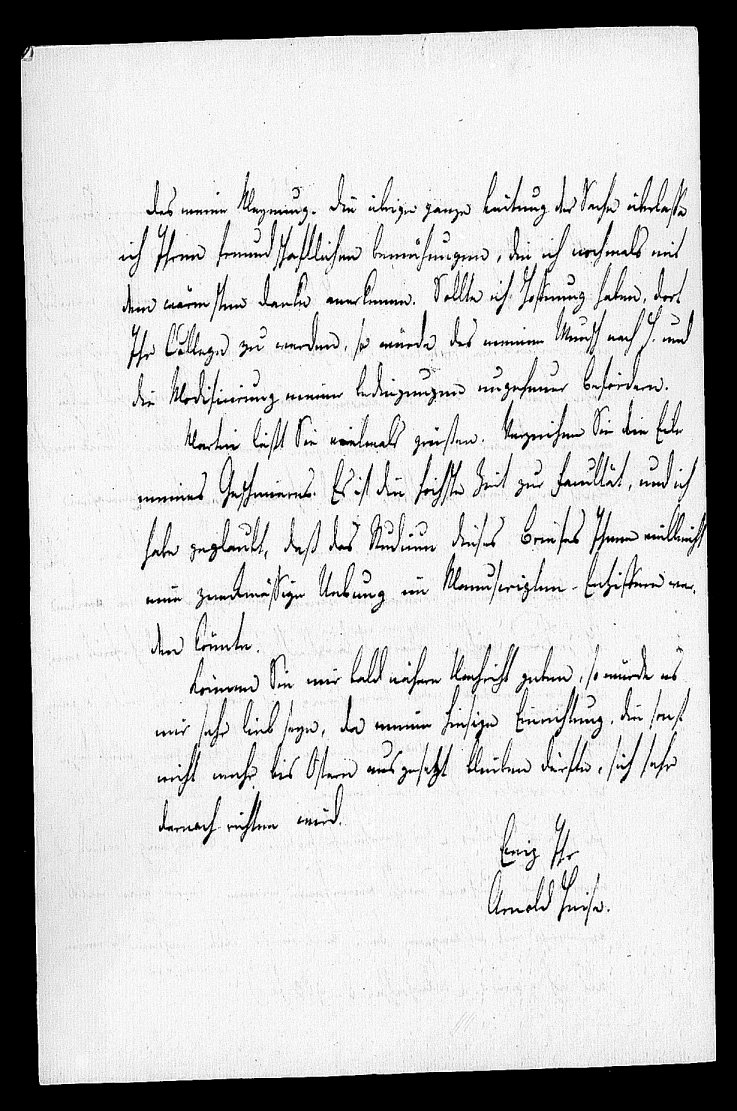 das meine Meynung. Die übrige ganze Leitung der Sache überlasse
ich Ihren freundschaftlichen Bemühungen, die ich nochmals mit
dem wärmsten Danke anerkenne. Sollte ich Hoffnung haben, dort
Ihr College zu werden, so würde das meinen Wunsch nach H. und
die Modificirung meiner Bedingungen ungeheuer befördern.
Martin läßt Sie vielmals grüßen. Verzeihen Sie die Eile
meines Geschmieres. Es ist die höchste Zeit zur Facultät, und ich
habe geglaubt, daß das Studium dieses Briefes Ihnen vielleicht
eine zweckmässige Uebung im Manuscripten-Entziffern wer-
den könnte.
Können Sie mir bald nähere Nachricht geben, so würde es
mir sehr lieb seyn, da meine hiesige Einrichtung, die sonst
nicht mehr bis Ostern ausgesetzt bleiben dürfte, sich sehr
darnach richten wird.
Ewig Ihr
Arnold Heise.